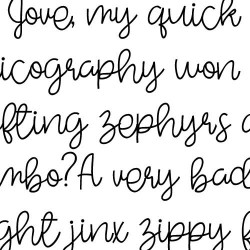 Jove, my quick
icography won
fting zephyrs
mbo? A very bad
ght jinx zippy